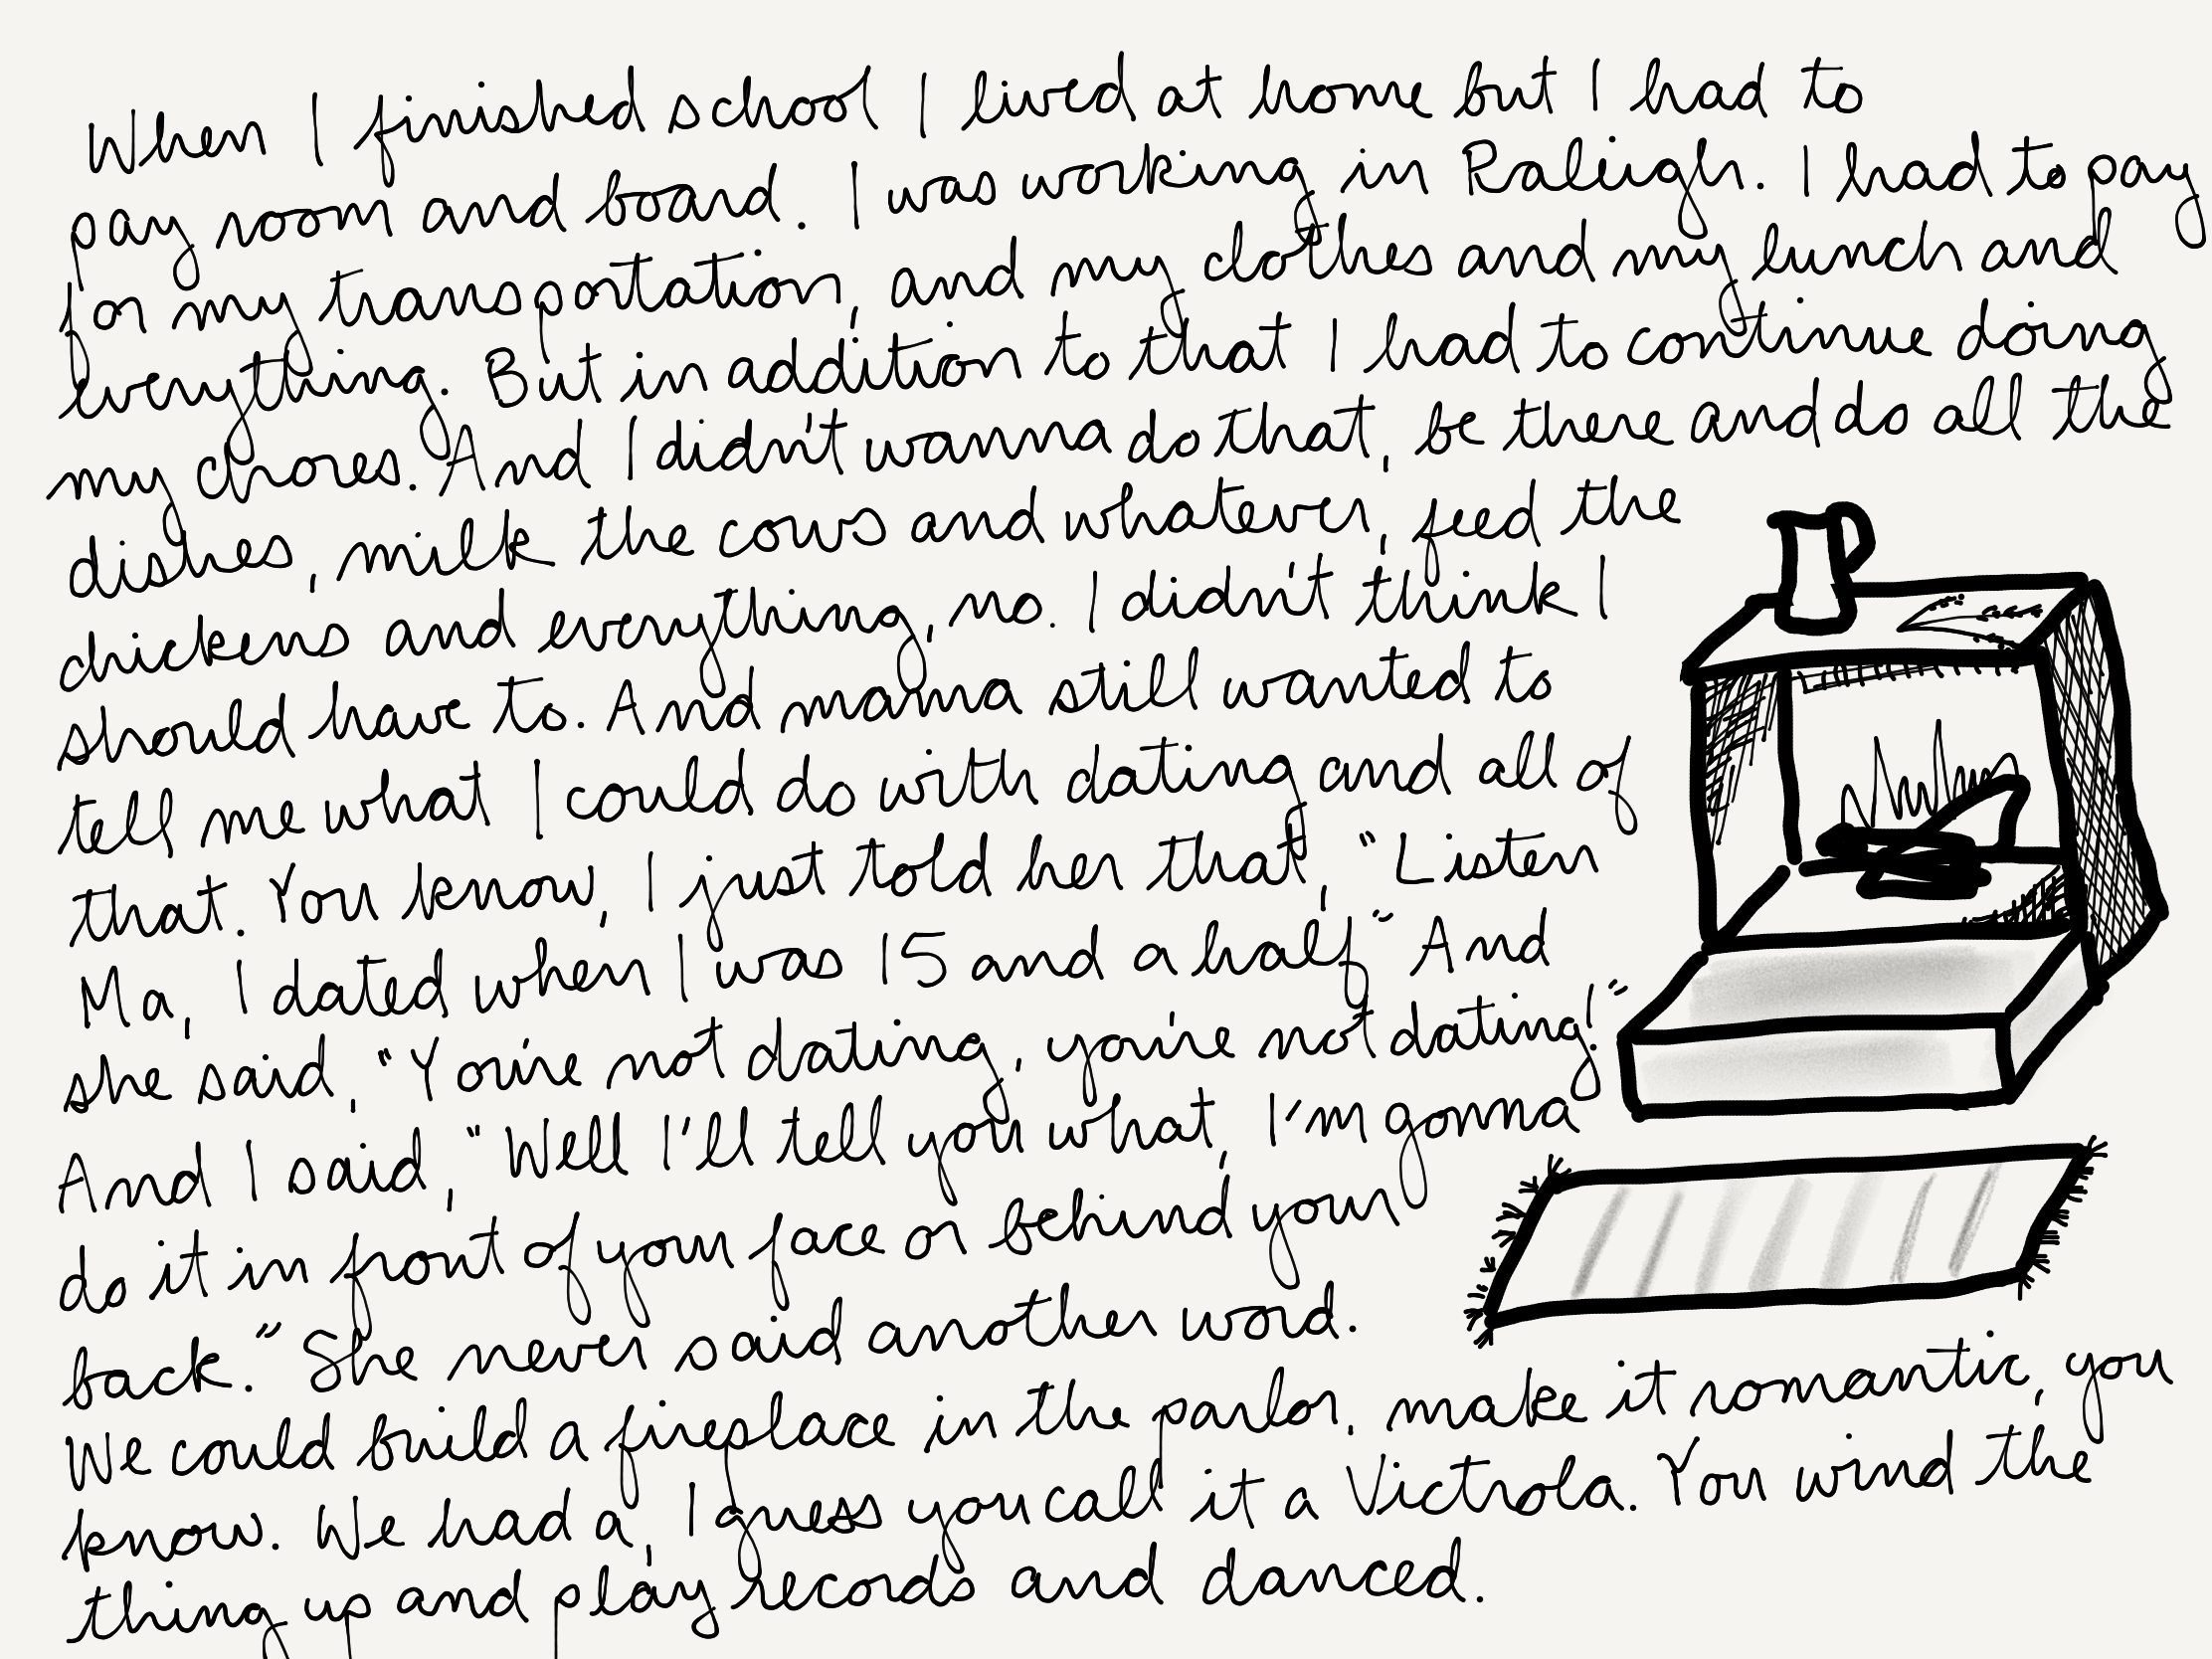 When I finished school I lived at home but I had to
pay room and board. I was working in Raleigh. I had to pay
for my transportation, and my clothes and my lunch and
everything. But in addition to that I had to continue doing
my chores. And I didn't wanna do that, be there and do all the
dishes, milk the cows and whatever, feed the
chickens and everything, no. I didn't think I
should have to. And mama still wanted to
tell me what I could do with dating and all of
that. You know, I just told her that, "Listen
Ma, I dated when I was 15 and a half" And
she said, "You're not dating, you're not dating!"
And I said, "Well I'll tell you what, I'm gonna
do it in front of your face or behind your
back." She never said another word.
We could build a fireplace in the parlor, make it romantic, you
know. We had a, I guess you call it a Victrola. You wind the
thing up and play records and danced.